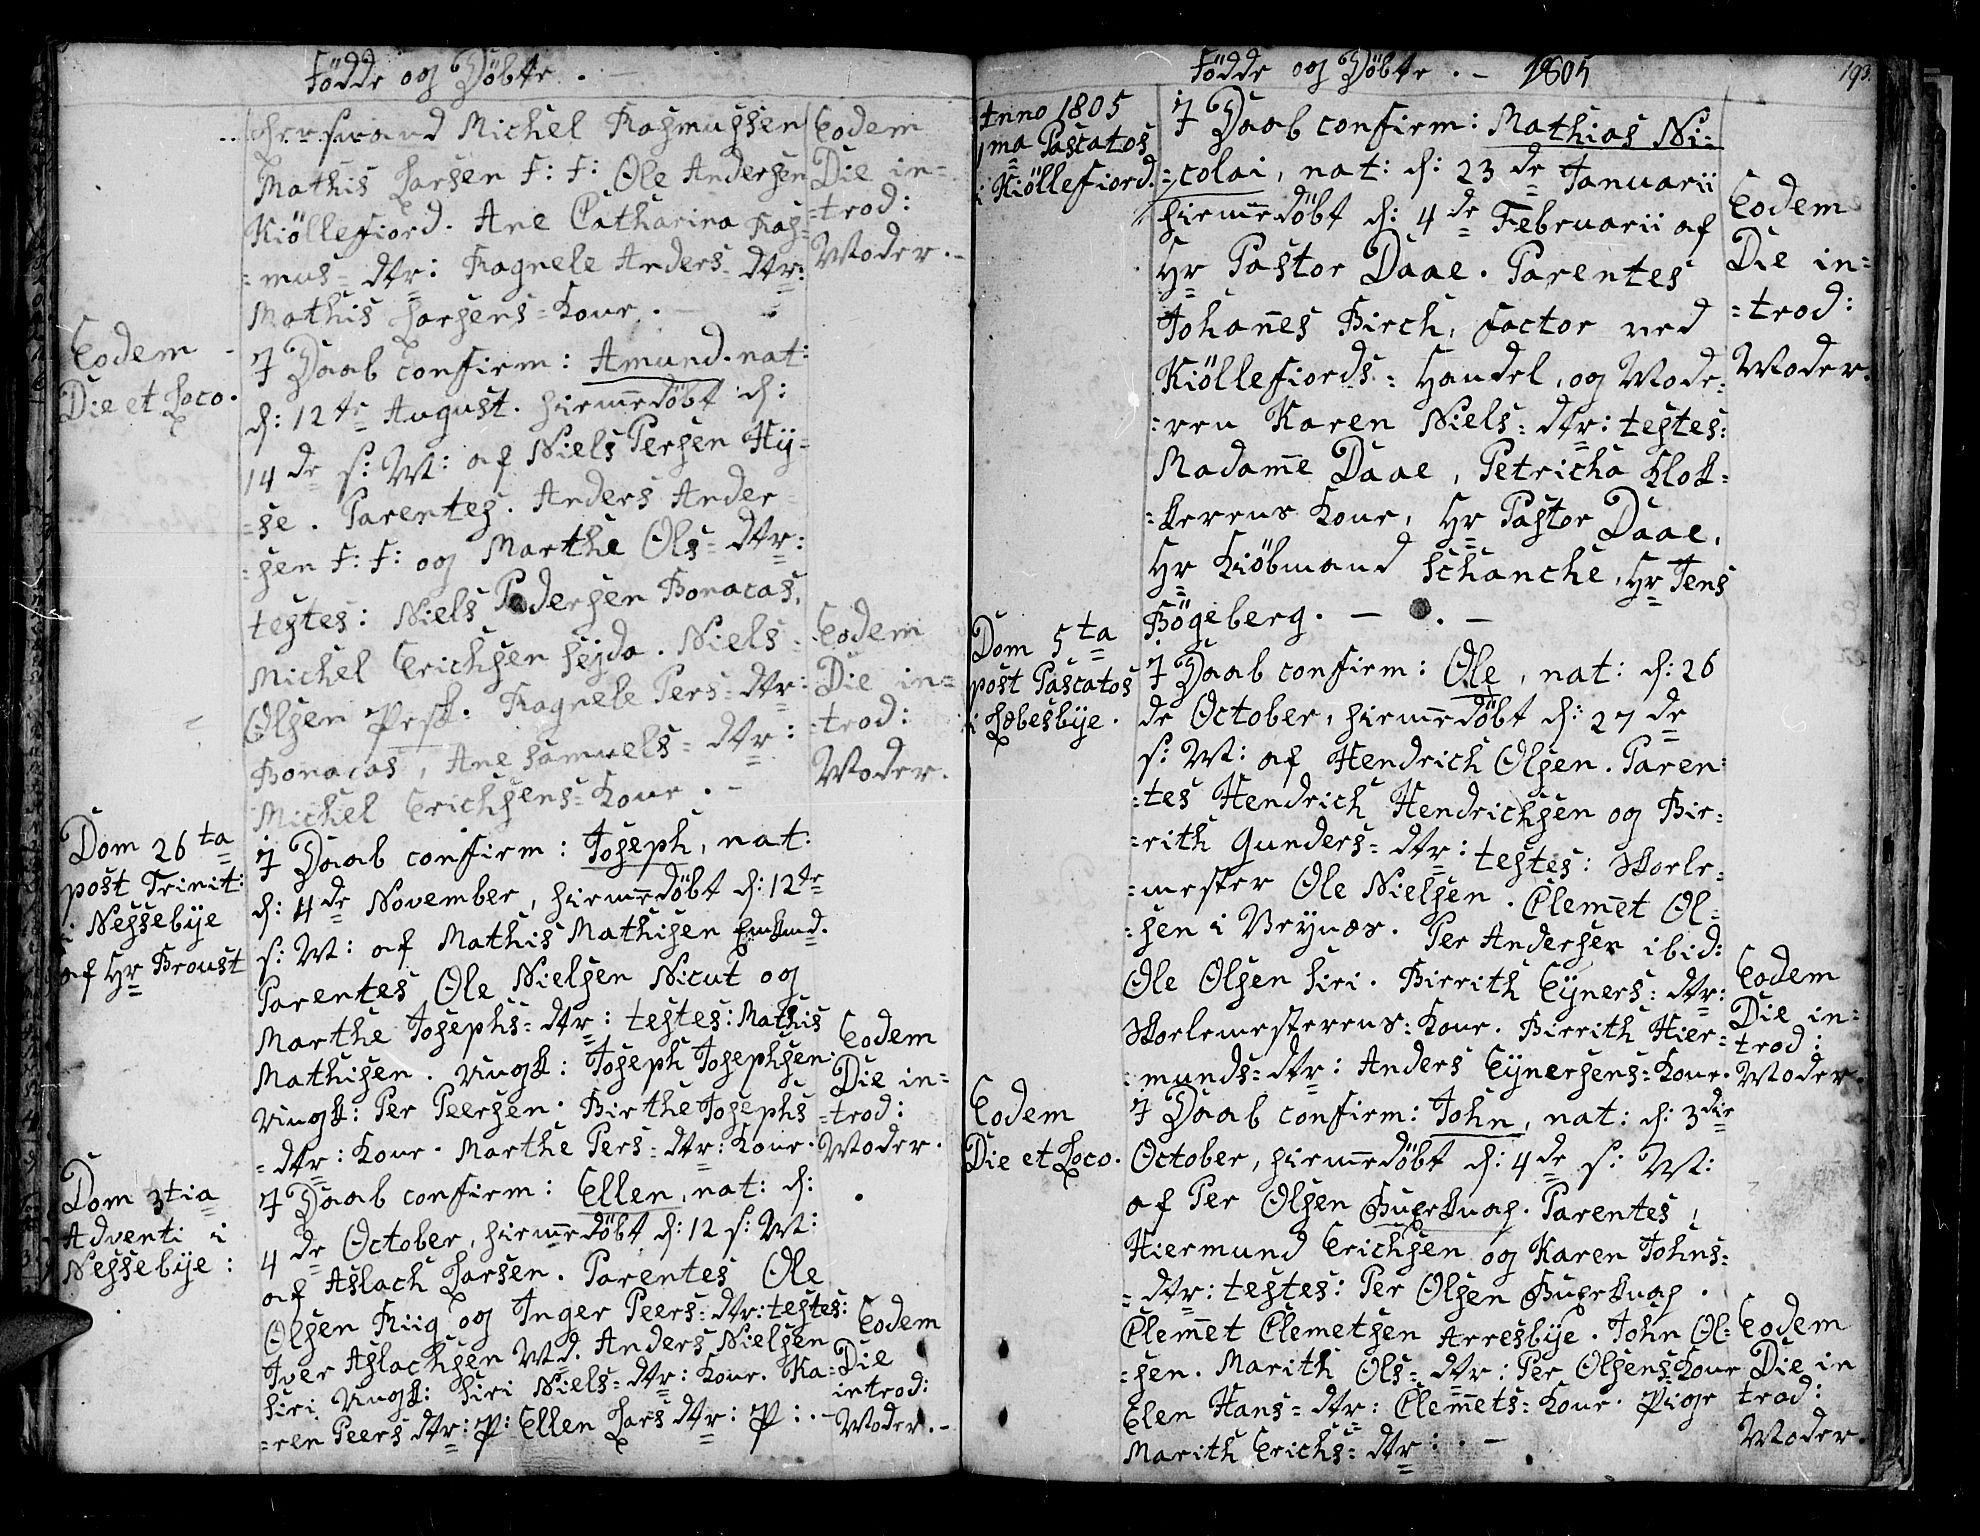 Födde og Döbte. –
Michel Rasmussen
Mathis Larsen F: F: Ole Andersen
Kiöllefiord. Ane Catharina Ras=
=mus= dtr: Ragnele Anders= dtr:
Mathis Larsens= Kone. –
Eodem
Die in=
=trod:
Moder. –
Eodem
Die et Loco.
I Daab confirm: Amund. nat:
d: 12te August. hiemedöbt d:
14de s: M: af Niels Persen Hy=
=se. Parentes. Anders Ander=
=sen F: F: og Marthe Ols= dtr:
testes: Niels Pedersen Bonacas,
Michel Erichsen Sejda. Niels
Olsen Presk. Ragnele Pers= dtr:
Bonacas, Ane Samuels= dtr:
Michel Erichsens= Kone. –
Eodem
Die in=
=trod:
Moder.
Dom 26ta
post Trinit:
i Nessebÿe
af Hr Proust
I Daab confirm: Joseph, nat:
d: 4de November, hiemedöbt d: 12te
s: M: af Mathis Mathisen
Parentes Ole Nielsen Nicut og
Marthe Josephs= dtr: testes: Mathis
Mathisen. Ungk: Joseph Josephsen
Ungk: Per Peersen. Birthe Josephs
= dtr: Kone. Marthe Pers= dtr: Kone.
Eodem
Die in=
=trod:
Moder.
Dom 3tia
Adventi i
Nessebÿe:
I Daab confirm: Ellen, nat: d:
4de October, hiemedöbt d: 12 s: M:
af Aslach Larsen. Parentes Ole
Olsen Riig og Inger Peers= dtr: testes:
Iver Aslachsen Md. Anders Nielsen
Siri Ungk: Siri Niels= dtr: Kone. Ka=
=ren Peers dtr: P: Ellen Lars dtr: P: . –
Eodem
Die
introd:
Moder. –
Födde og Döbte. – 1805
193.
Anno 1805
1ma Pascatos
i Kiöllefiord.
I Daab confirm: Mathias Ni=
=colai, nat: d: 23de Januarii
hiemedöbt d: 4de Februarii af
Hr Pastor Daae. Parentes
Johanes Birch, Factor ved
Kiöllefiords= Handel, og Mode=
=ren Karen Niels= dtr: testes:
Madame Daae, Petricha Klok=
=kerens Kone, Hr Pastor Daae,
Hr Kiöbmand Schanche, Hr Jens
Bögeberg. – . –
Eodem
Die in=
=trod:
Moder.
Dom 5ta
post Pascatos
i Læbesbÿe.
I Daab confirm: Ole, nat: d: 26
de October, hiemedöbt d: 27de
s: M: af Hendrich Olsen. Paren=
=tes Hendrich Hendrichsen og Bir=
=rith Gunders= dtr: testes: Skole=
=mester Ole Nielsen. Clemet Ol=
=sen i Veynæs. Per Andersen ibid:
Ole Olsen Siri. Birrith Eyners= dtr:
Skolemesterens= Kone. Birrith Hier=
=munds= dtr: Anders Eynersens= Kone.
Eodem
Die in=
trod:
Moder.
Eodem
Die et Loco.
I Daab confirm: John, nat: d: 3die
October, hiemedöbt d: 4de s: M:
af Per Olsen Parentes,
Hiermund Erichsen og Karen Johns=
= dtr: testes: Per Olsen
Clemet Clemetsen Arresbÿe. John Ol=
=sen. Marith Ols= dtr: Per Olsens= Kone
Elen Hans= dtr: Clemets= Kone. Pige
Marith Erichs= dtr: . –
Eodem
Die in
trod:
Moder.